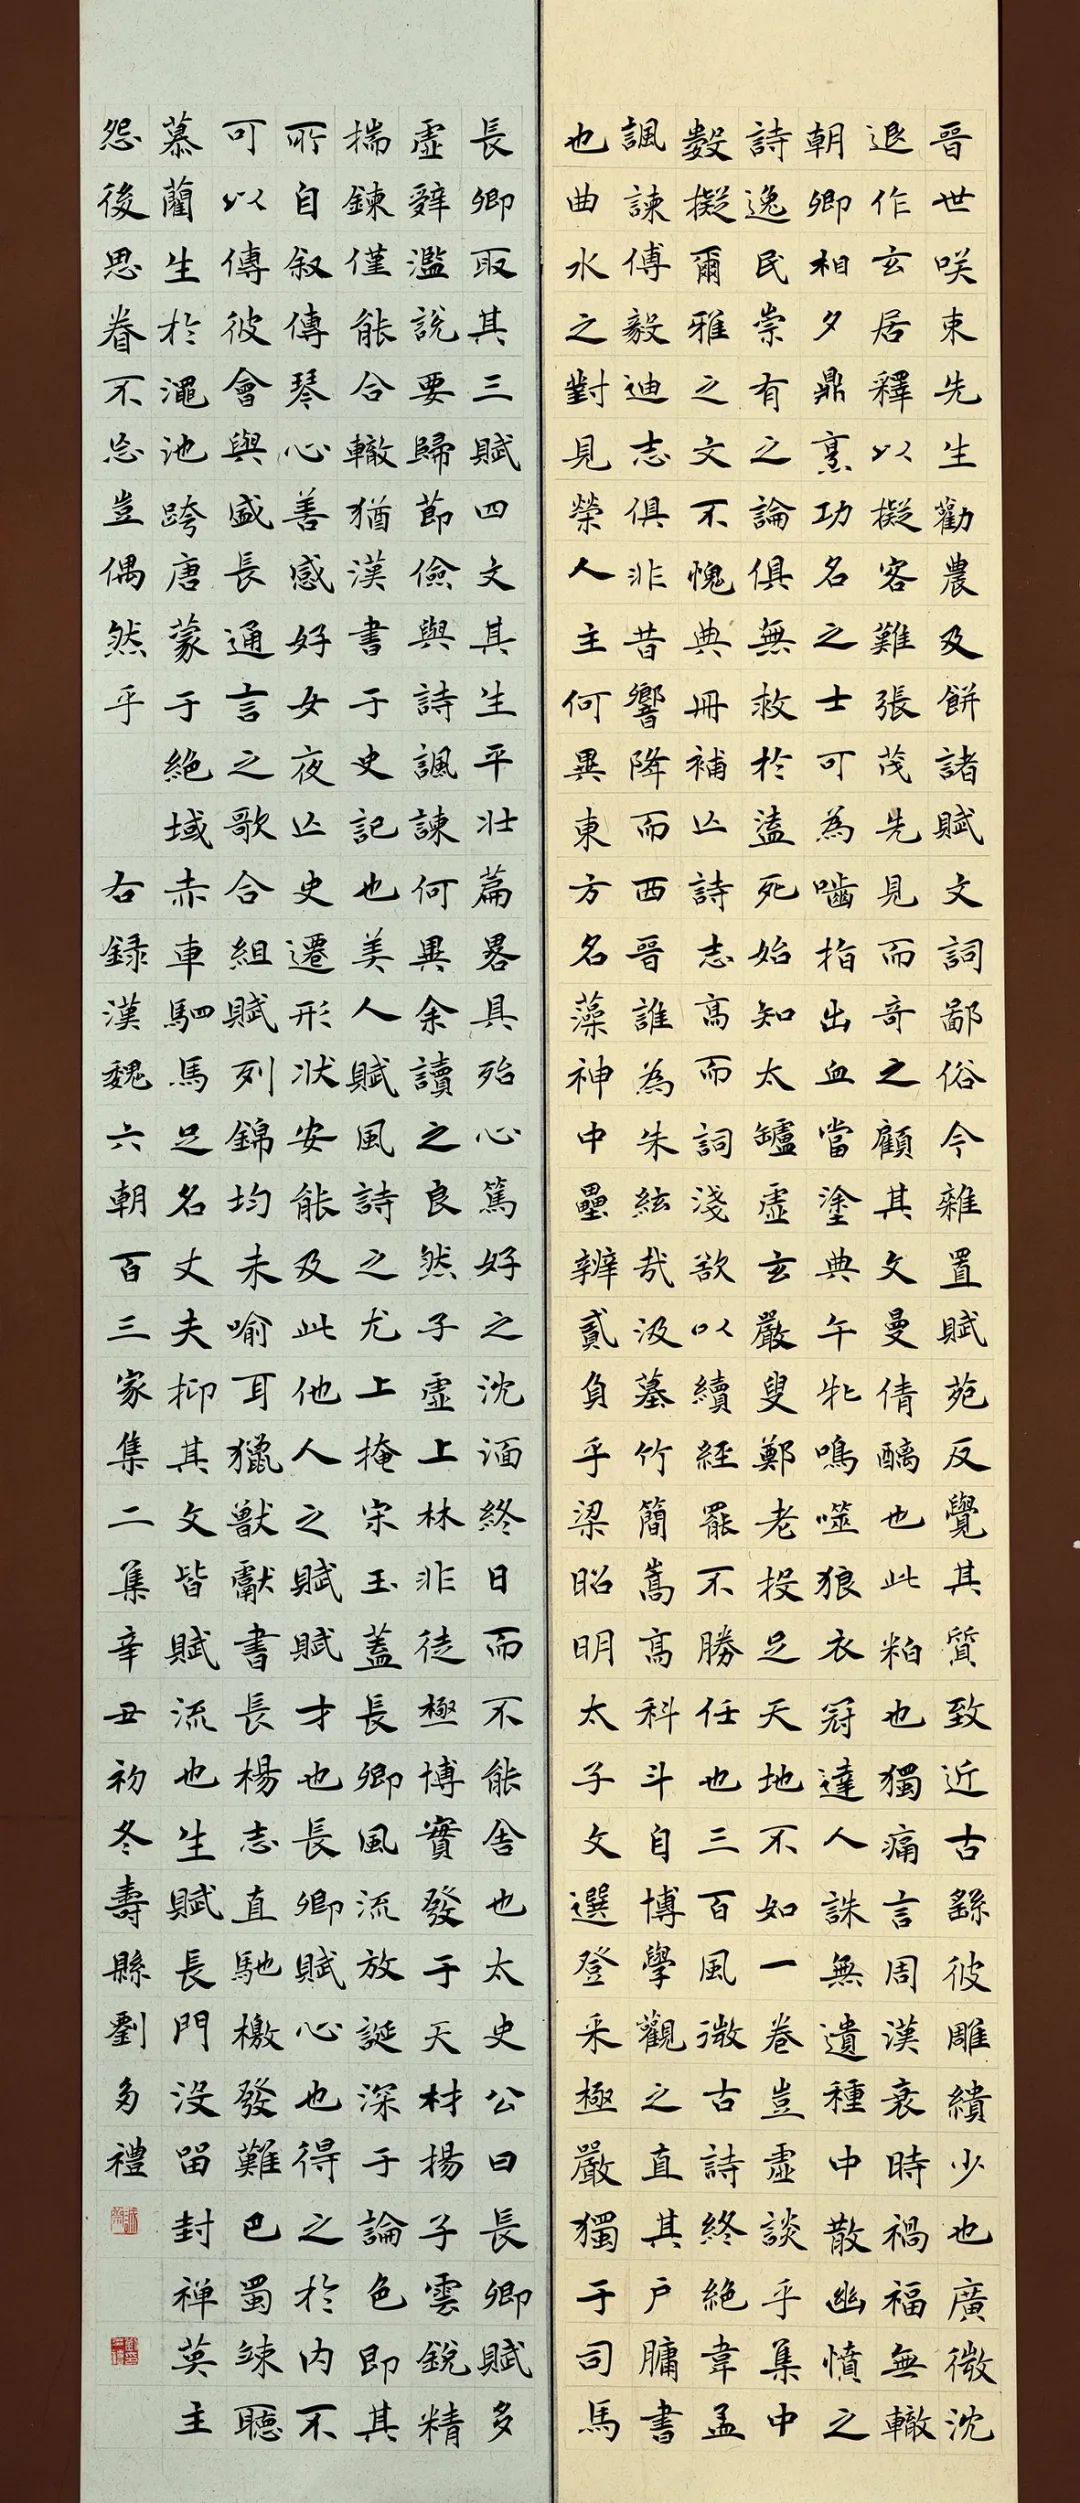 晉世咲束先生勸農及餅諸賦文詞鄙俗今雜置賦苑反覺其質致近古繇彼雕繢少也廣微沈
退作玄居釋以擬客難張茂先見而奇之顧其文曼倩釃也此粕也獨痛言周漢衰時禍福無轍
朝卿相夕鼎烹功名之士可為嚙指出血當塗典午牝鳴噬狼衣冠達人誅無遺種中散幽憤之
詩逸民崇有之論俱無救於溘死始知太罏虛玄嚴叟鄭老投足天地不如一卷豈虛談乎集中
數擬爾雅之文不愧典冊補亾詩志高而詞淺欲以續經罷不勝任也三百風微古詩終絕韋孟
諷諫傅毅迪志俱非昔響降而西晉誰為朱絃哉汲墓竹簡嵩高科斗自博學觀之直其戶牖書
也曲水之對見榮人主何異東方名藻神中壘辨貳負乎梁昭明太子文選登采極嚴獨于司馬
長卿取其三賦四文其生平壯篇畧具殆心篤好之沈湎終日而不能舍也太史公曰長卿賦多
虛辭濫說要歸節儉與詩諷諫何異余讀之良然子虛上林非徒極博實發于天材揚子雲銳精
揣鍊僅能合轍猶漢書于史記也美人賦風詩之尤上掩宋玉蓋長卿風流放誕深于論色即其
所自叙傳琴心善感好女夜亾史遷形狀安能及此他人之賦賦才也長卿賦心也得之於內不
可以傳彼會與盛長通言之歌合組賦列錦均未喻耳獵獸獻書長楊志直馳檄發難巴蜀竦聽
慕藺生於澠池跨唐蒙于絕域赤車駟馬足名丈夫抑其文皆賦流也生賦長門沒留封禅英主
怨後思眷不忘豈偶然乎 右録漢魏六朝百三家集二集辛丑初冬壽縣劉多禮